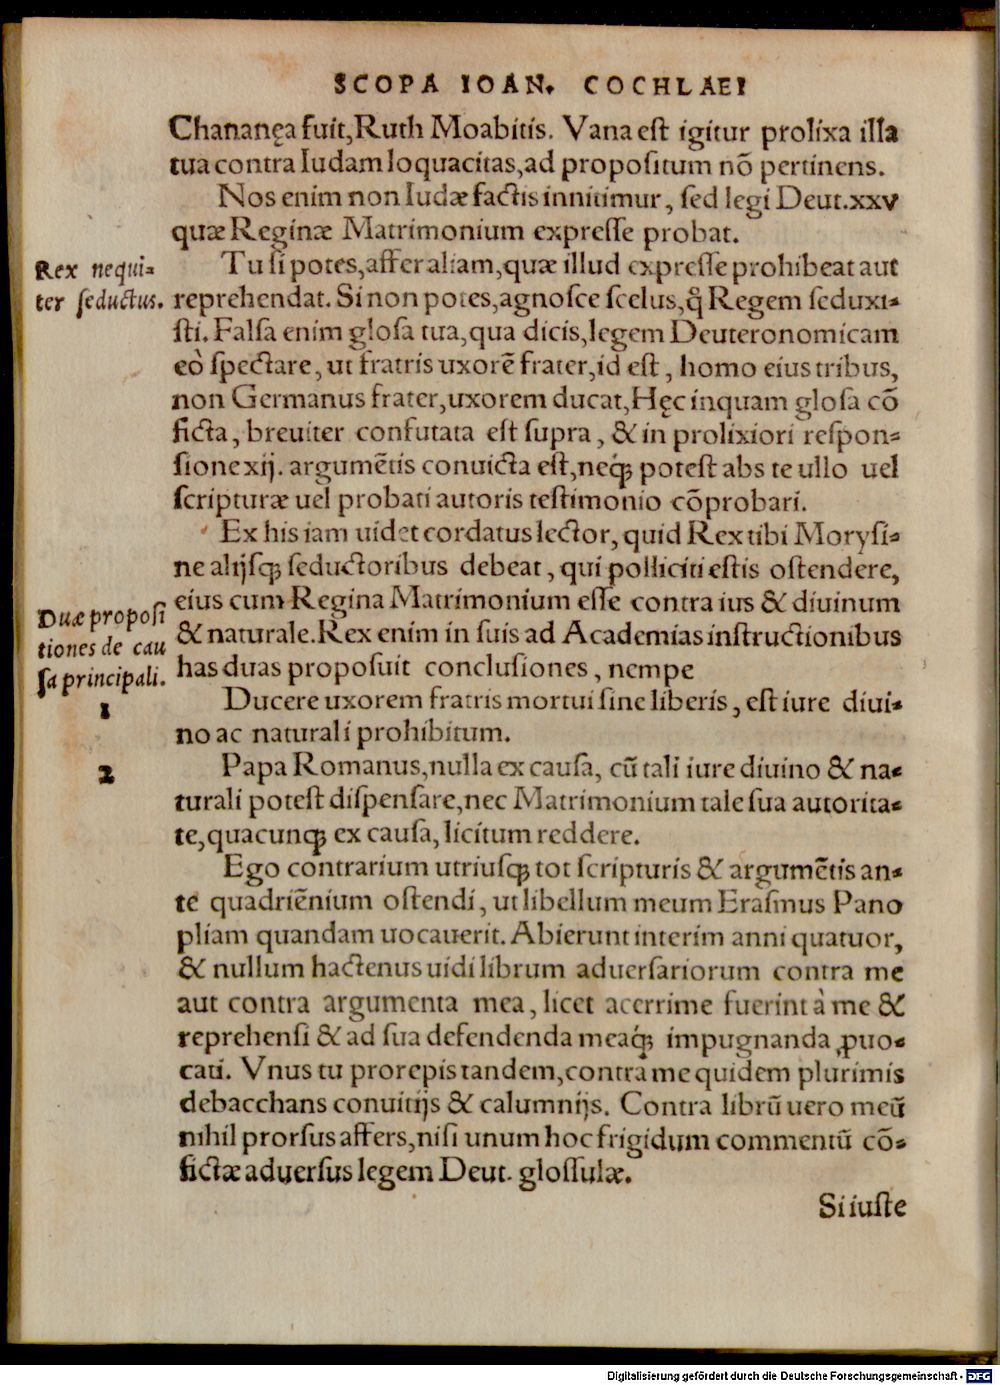 SCOPA IOAN. COCHLAEI
Chananęa fuit, Ruth Moabitis. Vana est igitur prolixa illa
tua contra Iudam loquacitas, ad propositum nō pertinens.
Nos enim non Iudæ factis innitimur, sed legi Deut. xxv
quæ Reginæ Matrimonium expresse probat.
Rex nequi-
ter seductus.
Tu si potes, affer aliam, quæ illud expresse prohibeat aut
reprehendat. Si non potes, agnosce scelus, ꝙ Regem seduxi-
sti. Falsa enim glosa tua, qua dicis, legem Deuteronomicam
eò spectare, ut fratris uxorē frater, id est, homo eius tribus,
non Germanus frater, uxorem ducat, Hęc inquam glosa cō
ficta, breuiter confutata est supra, & in prolixiori respon-
sione xij. argumētis conuicta est, neqꝫ potest abs te ullo uel
scripturæ uel probati autoris testimonio cōprobari.
Ex his iam uidet cordatus lector, quid Rex tibi Morysi-
ne alijsqꝫ seductoribus debeat, qui polliciti estis ostendere,
eius cum Regina Matrimonium esse contra ius & diuinum
& naturale. Rex enim in suis ad Academias instructionibus
has duas proposuit conclusiones, nempe
Duæ proposi
tiones de cau
sa principali.
1
Ducere uxorem fratris mortui sine liberis, est iure diui-
no ac naturali prohibitum.
2
Papa Romanus, nulla ex causa, cū tali iure diuino & na-
turali potest dispensare, nec Matrimonium tale sua autorita-
te, quacunqꝫ ex causa, licitum reddere.
Ego contrarium utriusqꝫ tot scripturis & argumētis an-
te quadriēnium ostendi, ut libellum meum Erasmus Pano
pliam quandam uocauerit. Abierunt interim anni quatuor,
& nullum hactenus uidi librum aduersariorum contra me
aut contra argumenta mea, licet acerrime fuerint à me &
reprehensi & ad sua defendenda meaqꝫ impugnanda ꝓuo-
cati. Vnus tu prorepis tandem, contra me quidem plurimis
debacchans conuitijs & calumnijs. Contra librū uero meū
nihil prorsus affers, nisi unum hoc frigidum commentū cō-
fictæ aduersus legem Deut. glossulæ.
Si iuste
Digitalisierung gefördert durch die Deutsche Forschungsgemeinschaft - DFG